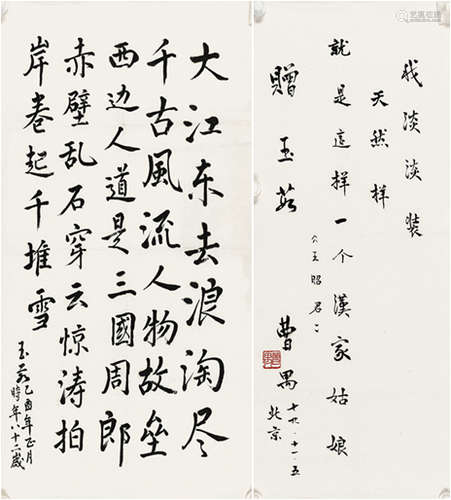 我淡淡装
天然样
就是這样一个漢家姑娘
《王昭君》
贈玉茹
曹禺
北京
大江东去浪淘尽
千古風流人物故垒
西边人道是三國周郎
赤壁乱石穿云惊涛拍
岸卷起千堆雪
玉茹乙酉年正月
時年八十二歲